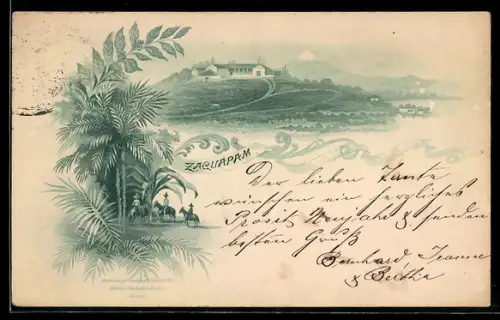 ZACUAPAM
Der lieben Tante
wünschen ein herzliches
Prosit Neujahr & senden
besten Gruß
Bernhard Jeanne
& Bertha